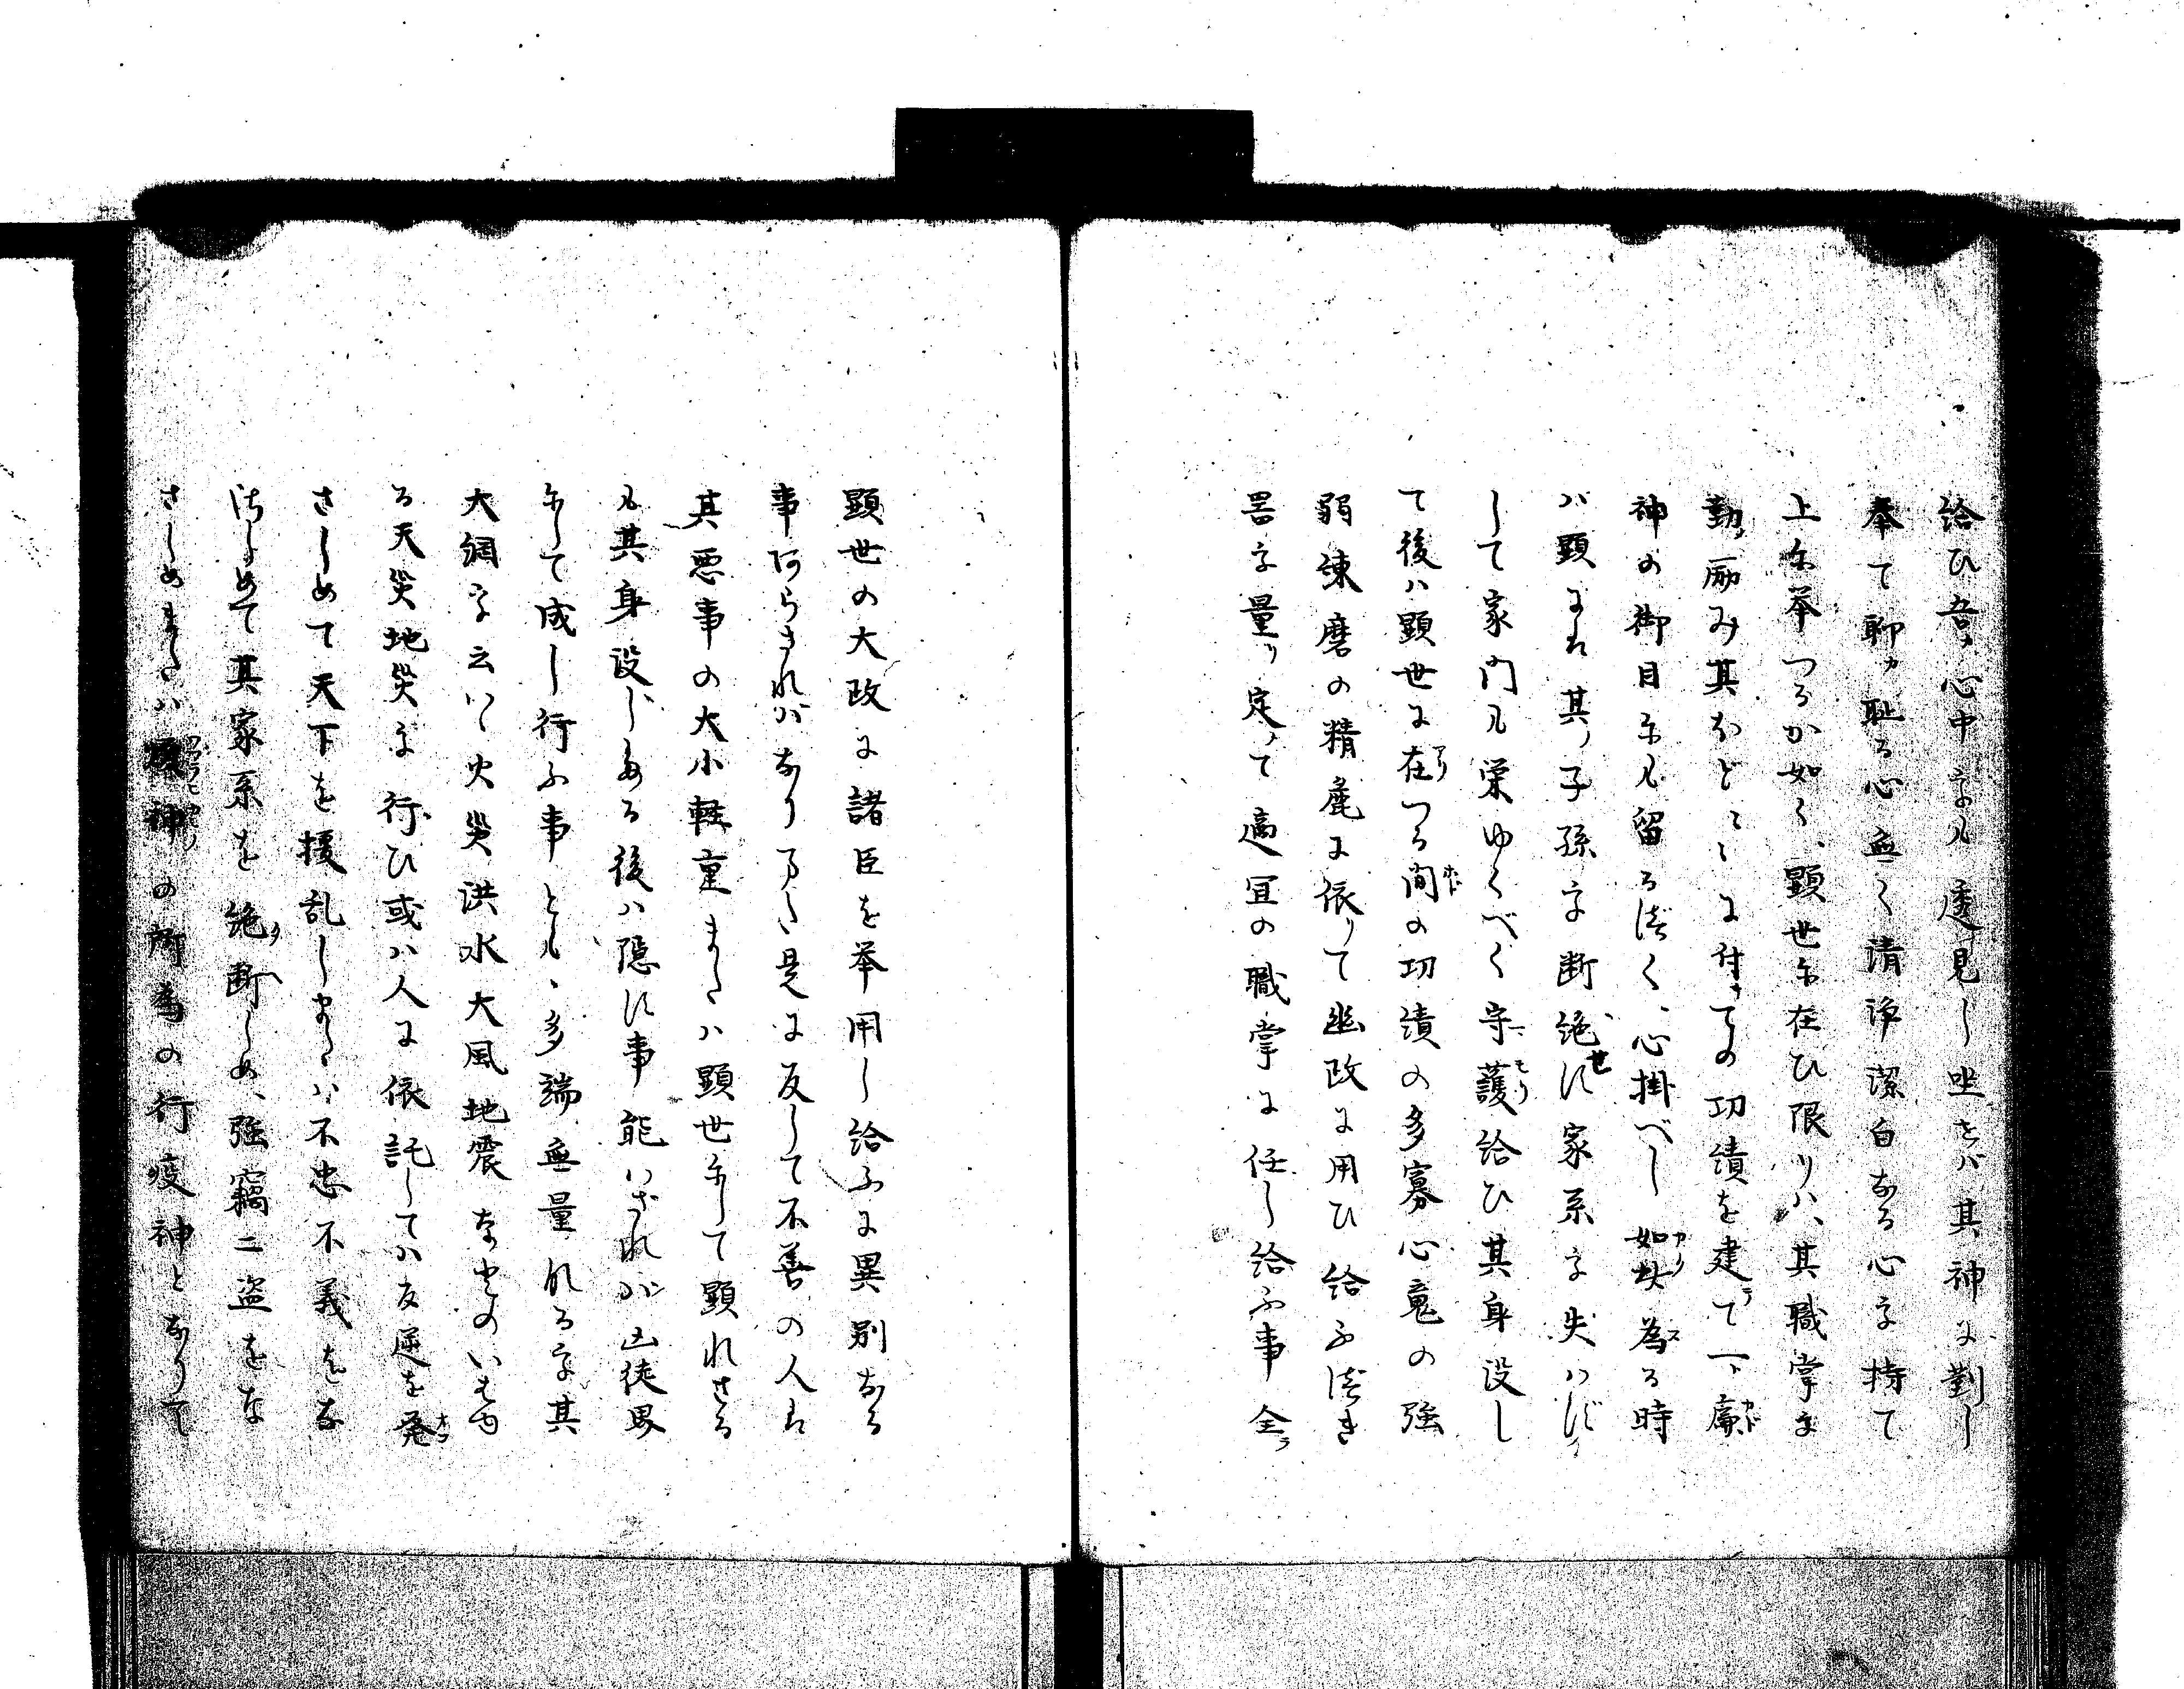 給ひ吾心中まても透見し坐せバ其神に對し
奉て聊か恥る心無く清浄潔白なる心を持て
上に挙つるか如く、顕世に在ひ限りハ、其職掌を
勤励み其ほど〱に付ての功績を建て一廉
神の御目にも留る満く、心掛べし如此為る時
バ顕よは其子孫を断絶せに家系を失ハず
して家門も栄ゆくべく守護給ひ其身没し
て後ハ顕世に在つる間の功績の多寡心魂の強
弱練磨の精麁に依りて幽政に用ひ給ふ満き
器を量り定て適宜の職掌に任し給ふ事全
顕世の大政に諸臣を挙用し給ふに異別なる
事阿らされバなりまた是に反して不善の人は
其悪事の大小軽重またハ顕世にして顕れさる
も其身没しある後ハ隠に事能ハざれバ凶徒界
にして成し行ふ事とも、多端無量れるを其
大綱を云ハヽ火災洪水大風地震なとのいはゆ
る天災地災を行ひ或ハ人に依託してハ反逆を発
さしめて天下を擾乱しまたハ不忠不義をな
さしめて其家系を絶断しめ、強竊二盗をな
さしめまたハ神の所為の行疫神となりて